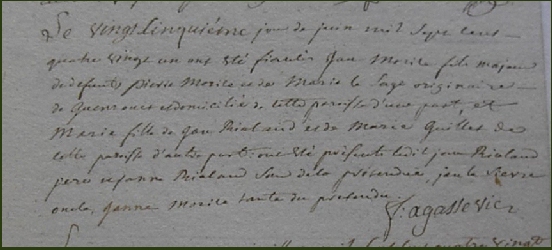 Le vingt cinquiéme jour de juin mil sept cent
quatre vingt un ont été fiancés jan Morice fils majeur
de defunts Pierre Morice et de Marie le Sage originaire
de Guenrouet et domicilié de cette paroisse d'une part, et
Marie fille de jan Rialand et de Marie Guillet de
cette paroisse d'autre part: ont été présents ledit jean Rialand
pere et janne Rialand de la prétendue, jan le Sievre
oncle, janne Morice tante du pretendu